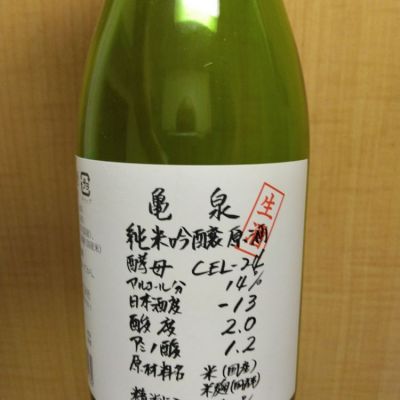 亀泉
生酒
純米吟醸原酒
酵母 CEL-24
アルコール分 14%
日本酒度 -13
酸度 2.0
アミノ酸 1.2
原材料名 米(国産)
米麹(国産米)